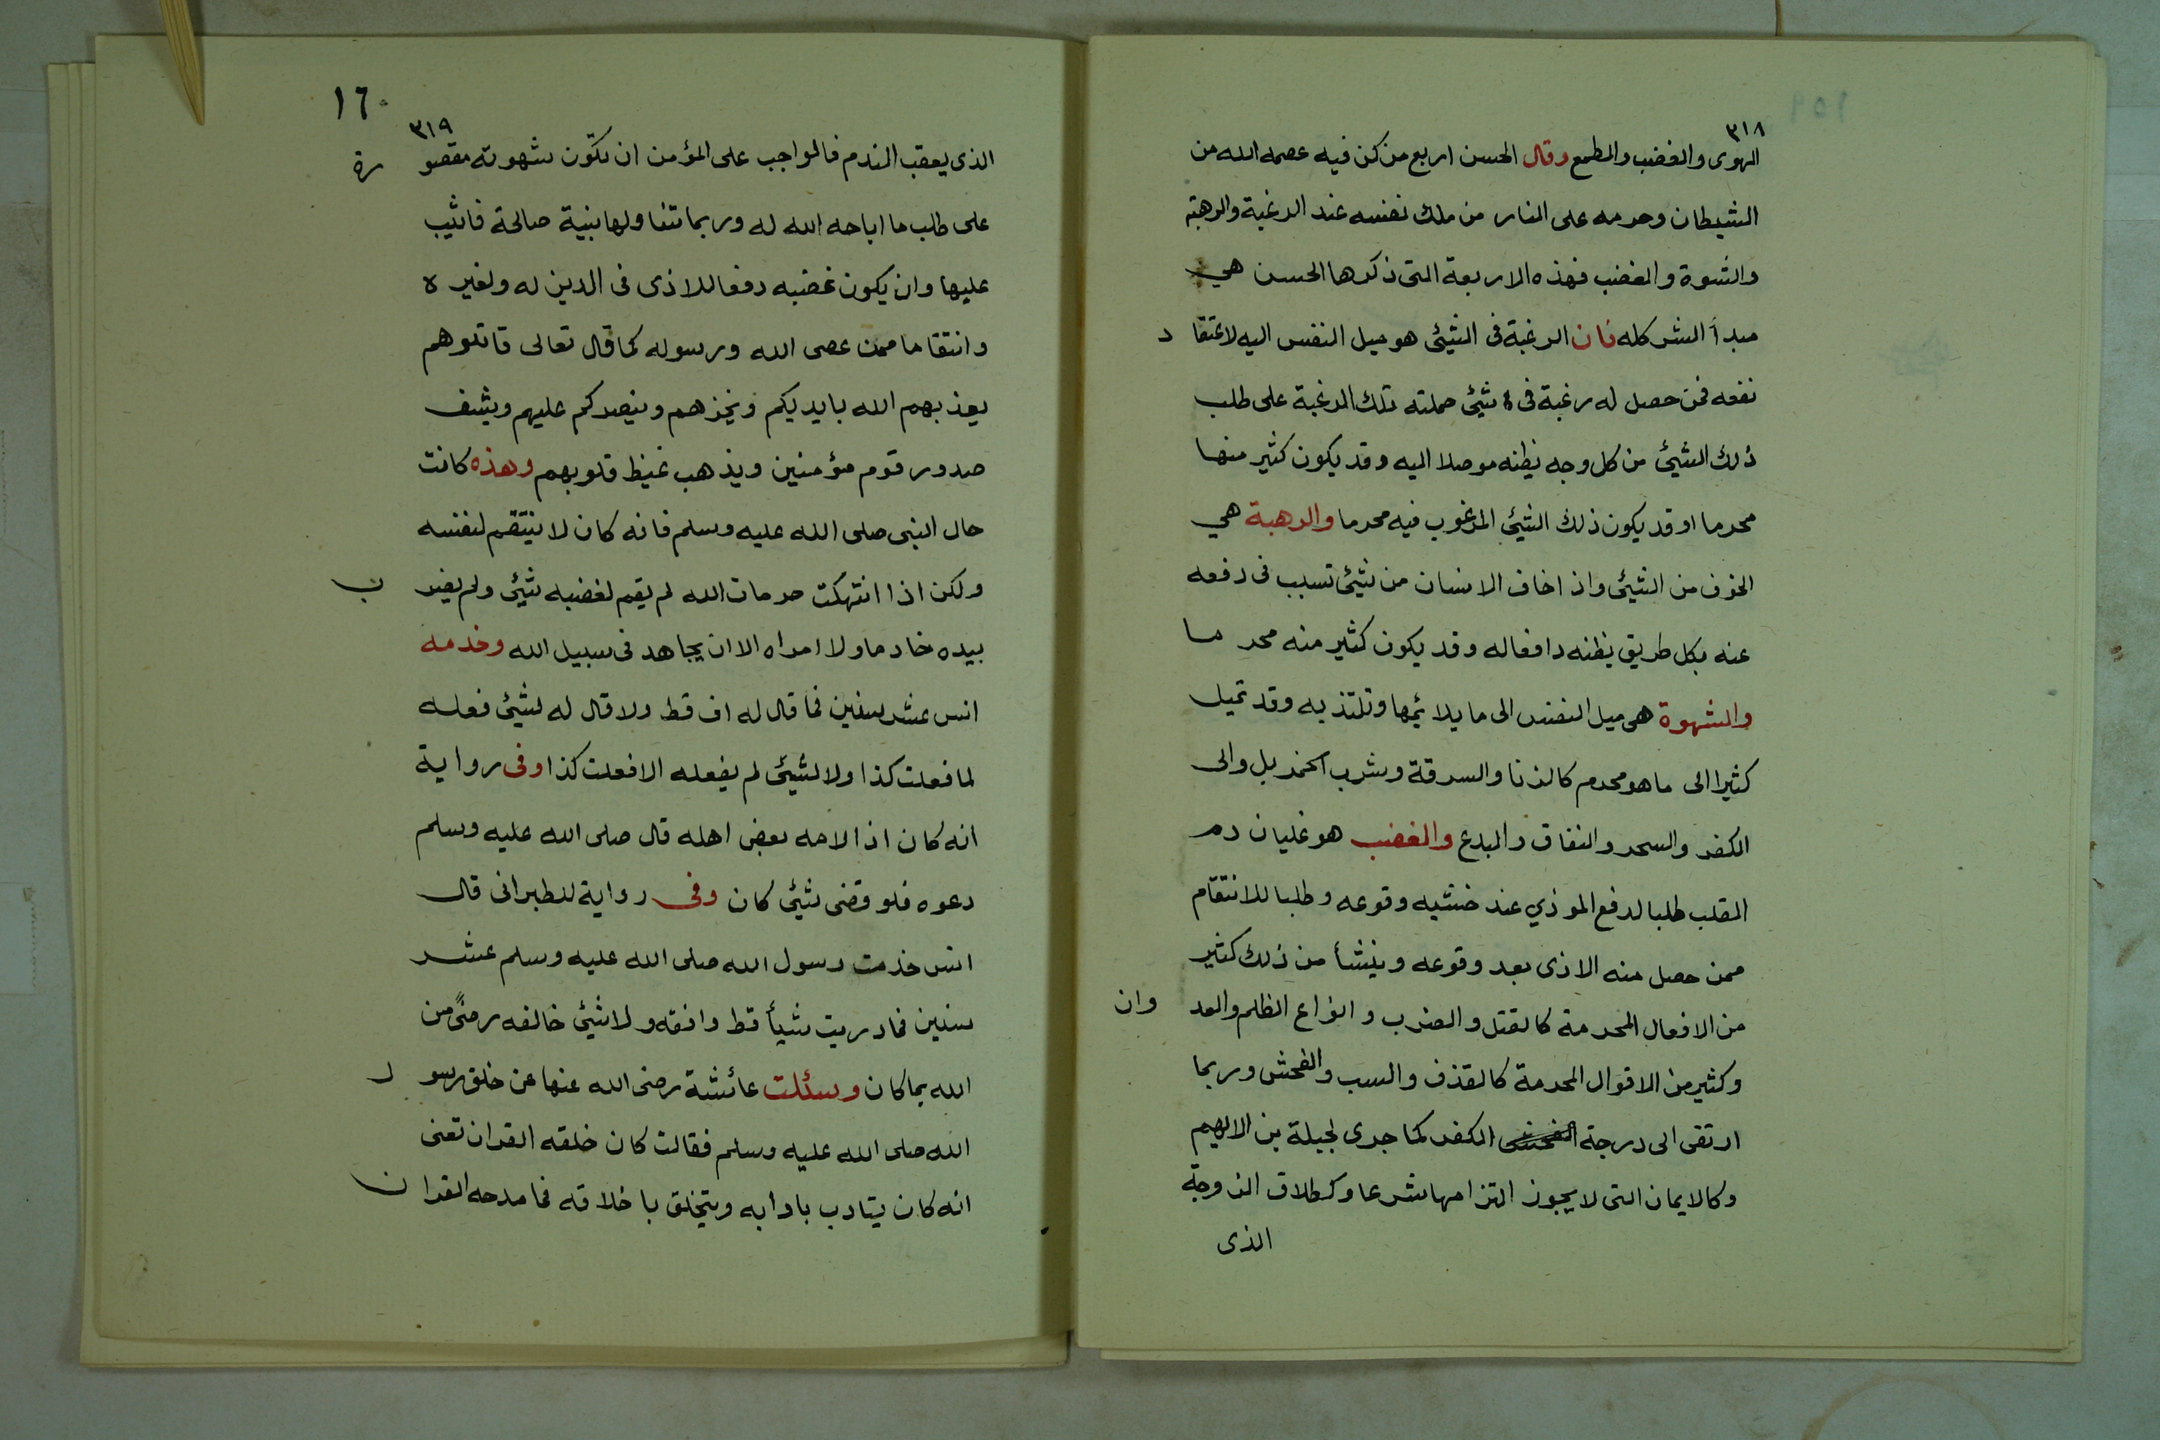 ٣١٨
الهوى والغضب والطمع وقال الحسن اربع من كن فيه عصمه الله من
الشيطان وحرمه على النار من ملك نفسه عند الرغبة والرهبة
والشهوة والغضب فهذه الاربعة التى ذكرها الحسن هي
مبدأ الشر كله فان الرغبة فى الشيئ هو ميل النفس اليه لاعتقا د
نفعه فمن حصل له رغبة فى شيئ حملته تلك الرغبة على طلب
ذلك الشيئ من كل وجه يظنه موصلا اليه وقد يكون كثير منها
محرما او قد يكون ذلك الشيئ المرغوب فيه محرما والرهبة هي
الخوف من الشيئ واذ اخاف الانسان من شيئ تسبب فى دفعه
عنه بكل طريق يظنه دافعاله وقد يكون كثير منه محر ما
والشهوة هى ميل النفس الى ما يلائمها وتلتذ به وقد تميل
كثيرا الى ما هو محرم كالزنا والسرقة وشرب الخمر بل والى
الكفر والسحر والنفاق والبدع والغضب هو غليان دم
القلب طلبا لدفع الموذي عند خشيه وقوعه وطلبا للانتقام
ممن حصل منه الاذى بعد وقوعه وينشأ من ذلك كثير
من الافعال المحرمة كالقتل والضرب وانواع الظلم والعد وان
وكثير من الاقوال المحرمة كالقذف والسب والفحش وربما
ارتقى الى درجة الفحش الكفر كما جرى لجبلة بن الايهم
وكالايمان التى لا يجوز التزامها شرعا وكطلاق الزوجة
الذى
١٦٠
٣١٩
الذى يعقب الندم فالواجب على المؤمن ان تكون شهوته مقصو رة
على طلب ما اباحه الله له وربما تناولها بنية صالحة فاثيب
عليها وان يكون غضبه دفعا للاذى فى الدين له ولغير ه
وانتقاما ممن عصى الله ورسوله كما قال تعالى قاتلوهم
يعذبهم الله بايديكم ويخزهم وينصركم عليهم ويشف
صدور قوم مؤمنين ويذهب غيظ قلوبهم وهذه كانت
حال النبى صلى الله عليه وسلم فانه كان لا ينتقم لنفسه
ولكن اذا انتهكت حرمات الله لم يقم لغضبه شيئ ولم يضر ب
بيده خادما ولا امراه الا ان يجاهد فى سبيل الله وخدمه
انس عشر سنين فما قال له اف قط ولا قال له لشيئ فعله
لما فعلت كذا ولا لشيئ لم يفعله الا فعلت كذا وفى رواية
انه كان اذا لامه بعض اهله قال صلى الله عليه وسلم
دعوه فلو قضى شيئ كان وفى رواية للطبرانى قال
انس خدمت رسول الله صلى الله عليه وسلم عشر
سنين فما دريت شيأ قط وافقه ولا شيئ خالفه رضىً من
الله بما كان وسئلت عائشة رضى الله عنها عن خلق رسو ل
الله صلى الله عليه وسلم فقالت كان خلقه القران تعنى
انه كان يتادب بادابه ويتخلق باخلاقه فما مدحه القرا ن